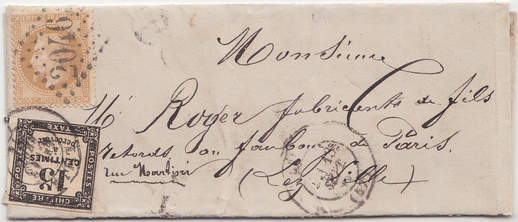 2046
Monsieur
Mr Roger fabricants de fils
retords au faubour de Paris
rue Martini
(Lez Lille)
CHIFFRE
15
CENTIMES
à percevoir
TAXE
POSTES
POSTES